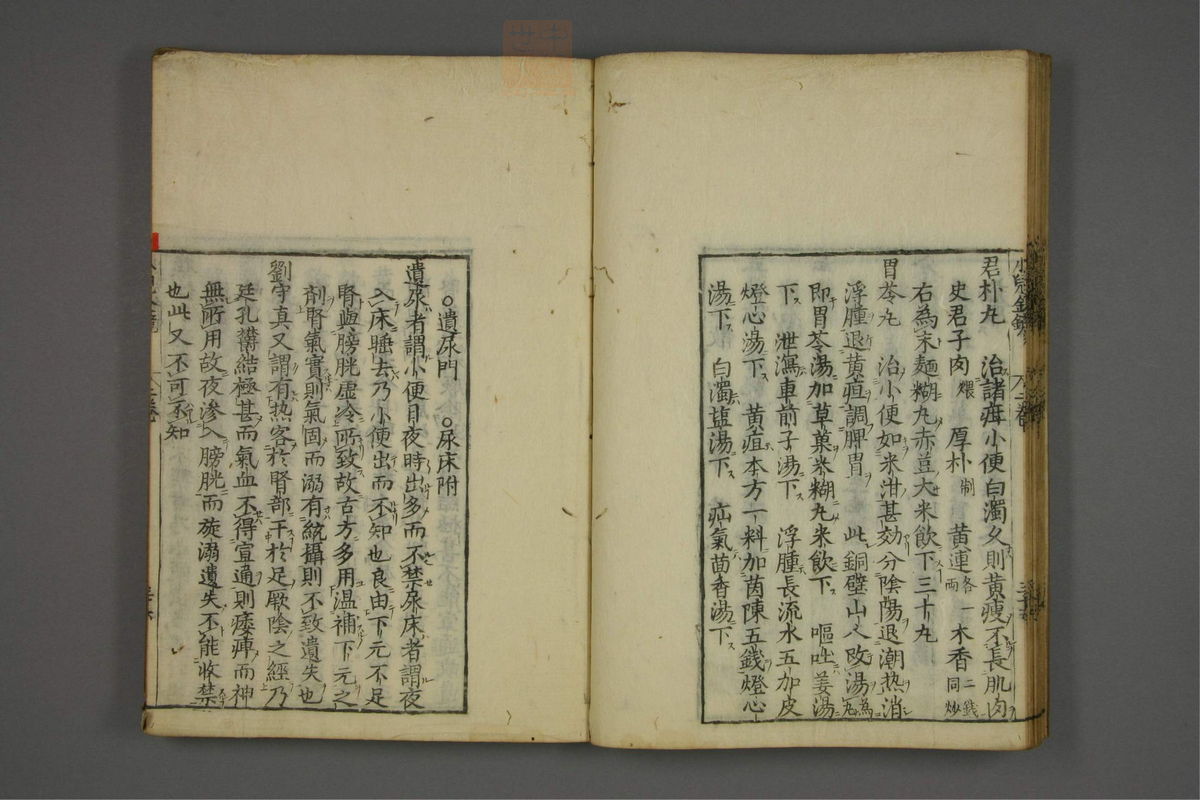 君朴丸 治諸疳小便白濁久則黄瘦不長肌肉
史君子肉煨 厚朴制 黄連各一兩 木香二錢同炒
右為末麵糊丸赤荳大米飲下三十丸
胃苓丸 治小便如米泔甚効分陰陽退潮热消
浮腫退黄疸調脾胃 此銅壁山人改湯為丸
即胃苓湯加草菓米糊丸米飲下 嘔吐姜湯
下 泄瀉車前子湯下 浮腫長流水五加皮
燈心湯下 黄疸本方一料加茵陳五錢燈心
湯下 白濁盐湯下 疝氣茴香湯下
○遺尿門 ○尿床附
遺尿者謂小便日夜時出多而不禁尿床者謂夜
入床睡去乃小便出而不知也良由下元不足
腎與膀胱虚冷所致故古方多用温補下元之
剤腎氣實則氣固而溺有統攝則不致遺失也
劉守真又謂有热客於腎部干於足厥陰之經乃
廷孔欝結極甚而氣血不得宣通則痿痺而神
無所用故夜滲入膀胱而旋溺遺失不能收禁
也此又不可不知